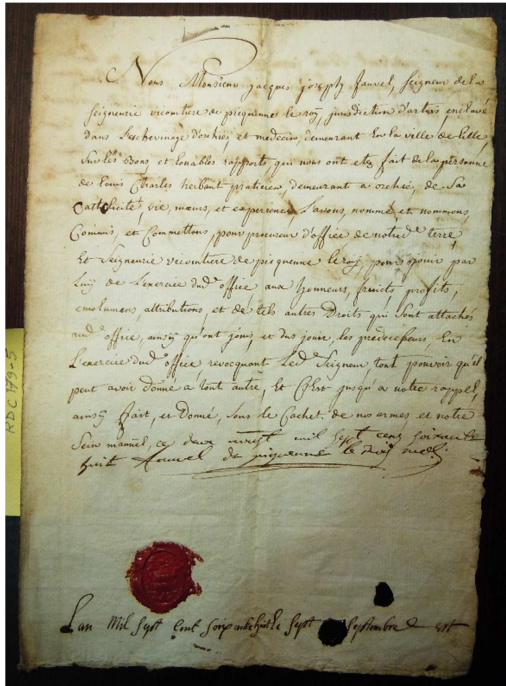 Nous Monsieur jacques joseph fauvel, Seigneur de la
Seigneurie vicomtiere de piquenne le roy, jurisdiction d'artois enclavé
dans l'eschevinage d'orchies, et medecin, demeurant En la ville de Lille,
Sur les bons et louables rapports qui nous ont etez fait de la personne
de louis Charles herbaut praticien demeurant a orchies, de Sa
Catholicité, vie, mœurs, et experience, L'avons, nommé et nommons
Commis, et Commettons, pour procureur d'office de notre de terre
Et Seigneurie vicomtiere de piquenne le roy, pour jouir par
luy de L'exercice dud office aux honneurs, fruicts profits,
emolumens, attributions, et de tels autres Droits qui Sont attachés
aud office, ainsy qu'ont jouis, et du jouir, les predecesseurs En
L'exercice dud office, revocquant Led Seigneur tout pouvoir qu'il
peut avoir donné a tout autre, Et C'Est jusqu'a notre rappel,
ainsy fait, et Donné, Sous le Cachet de nos armes et notre
Sein manuel, ce deux mil Sept cens soixante
huit fauvel de piquenne le Roy
L'an Mil Sept Cent Soixante huit le Sept Septembre
RDC 179-5